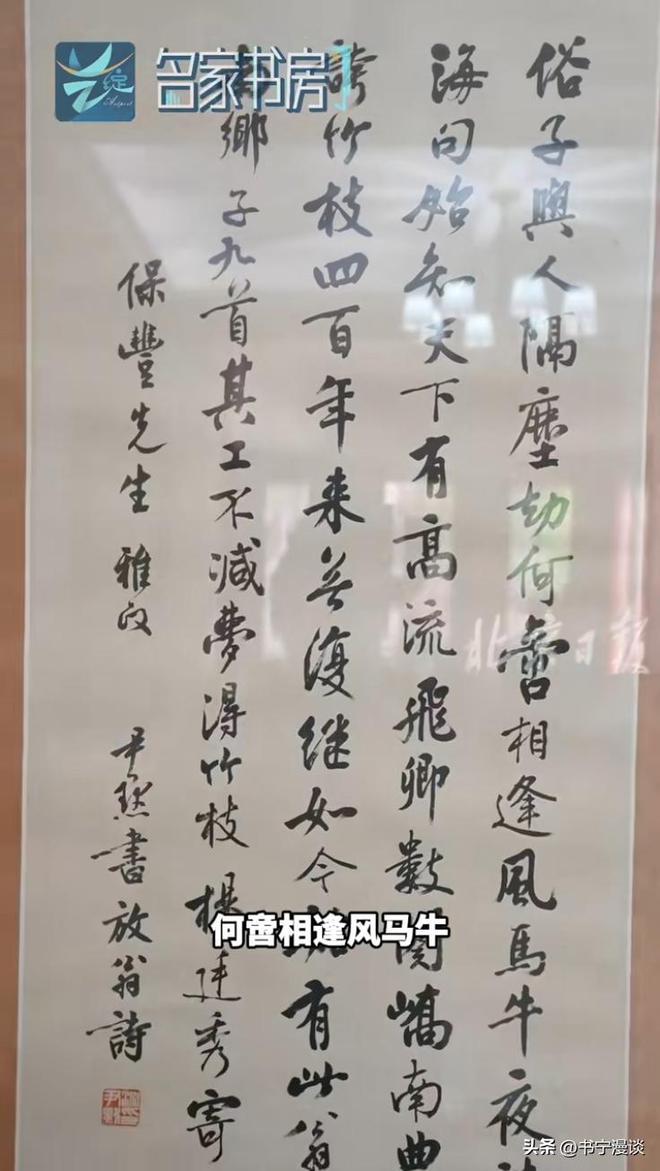 云绽
名家书房
俗子與人隔塵劫何啻相逢風馬牛夜
海句始知天下有高流飛卿數闋嶠南曲
誇竹枝四百年来無復继如今有此翁
鄉子九首其工不減夢得竹枝 楊廷秀寄
保豐先生雅正 尹默書放翁詩
北京日报
何啻相逢风马牛
头条 @书宁漫谈